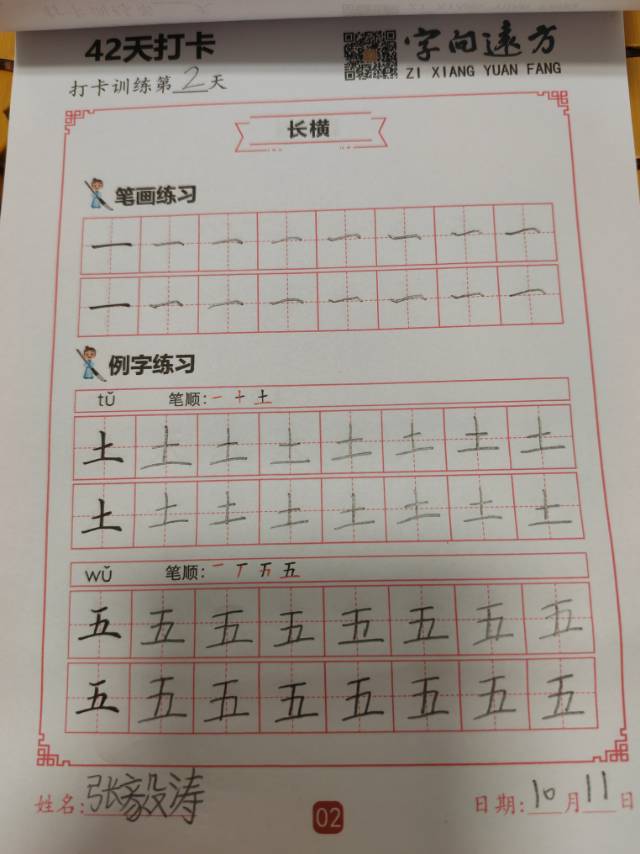 42天打卡
字向远方
ZI XIANG YUAN FANG
打卡训练第2天
长横
笔画练习
一 一 一 一 一 一 一 一
一 一 一 一 一 一 一 一
例字练习
tǔ 笔顺:一 十 土
土 土 土 土 土 土 土 土
土 土 土 土 土 土 土 土
wǔ 笔顺:一 丆 五 五
五 五 五 五 五 五 五 五
五 五 五 五 五 五 五 五
姓名:张毅涛
02
日期:10月11日